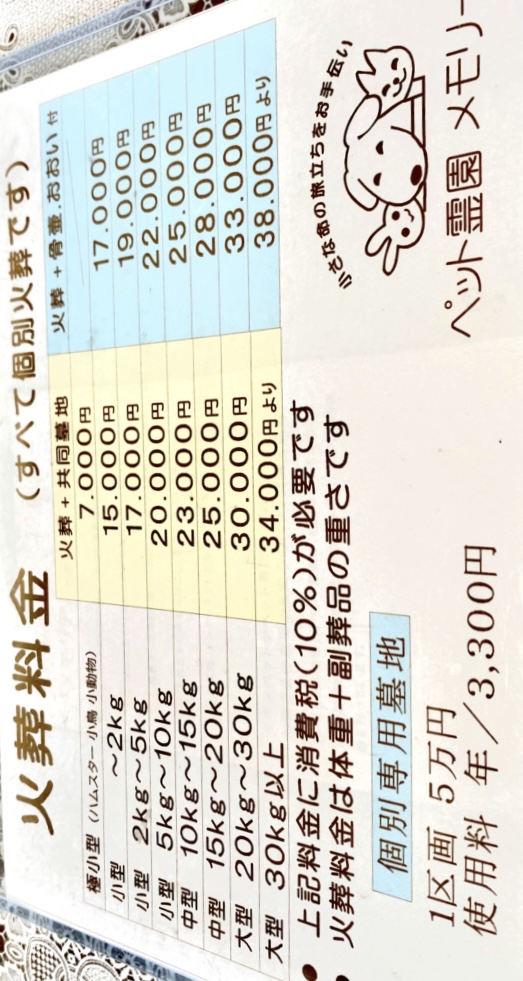 火葬料金 (すべて個別火葬です)
火葬+共同墓地 火葬+骨壺.おおい付
極小型 (ハムスター 小鳥 小動物) 7.000円
小型 ~2kg 15.000円 17.000円
小型 2kg~5kg 17.000円 19.000円
小型 5kg~10kg 20.000円 22.000円
中型 10kg~15kg 23.000円 25.000円
中型 15kg~20kg 25.000円 28.000円
大型 20kg~30kg 30.000円 33.000円
大型 30kg以上 34.000円より 38.000円より
● 上記料金に消費税(10%)が必要です
● 火葬料金は体重+副葬品の重さです
個別専用墓地
1区画 5万円
使用料 年/3,300円
小さな命の旅立ちをお手伝い
ペット霊園 メモリー